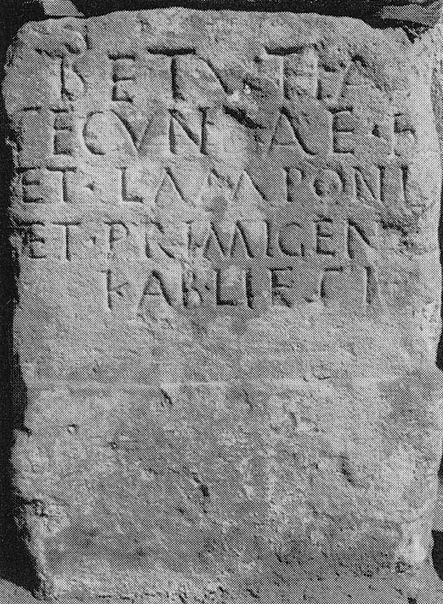 BETVTIA
ECVN AE
ET · LAMPONI
ET · PRIMIGEN
KAB·LIE